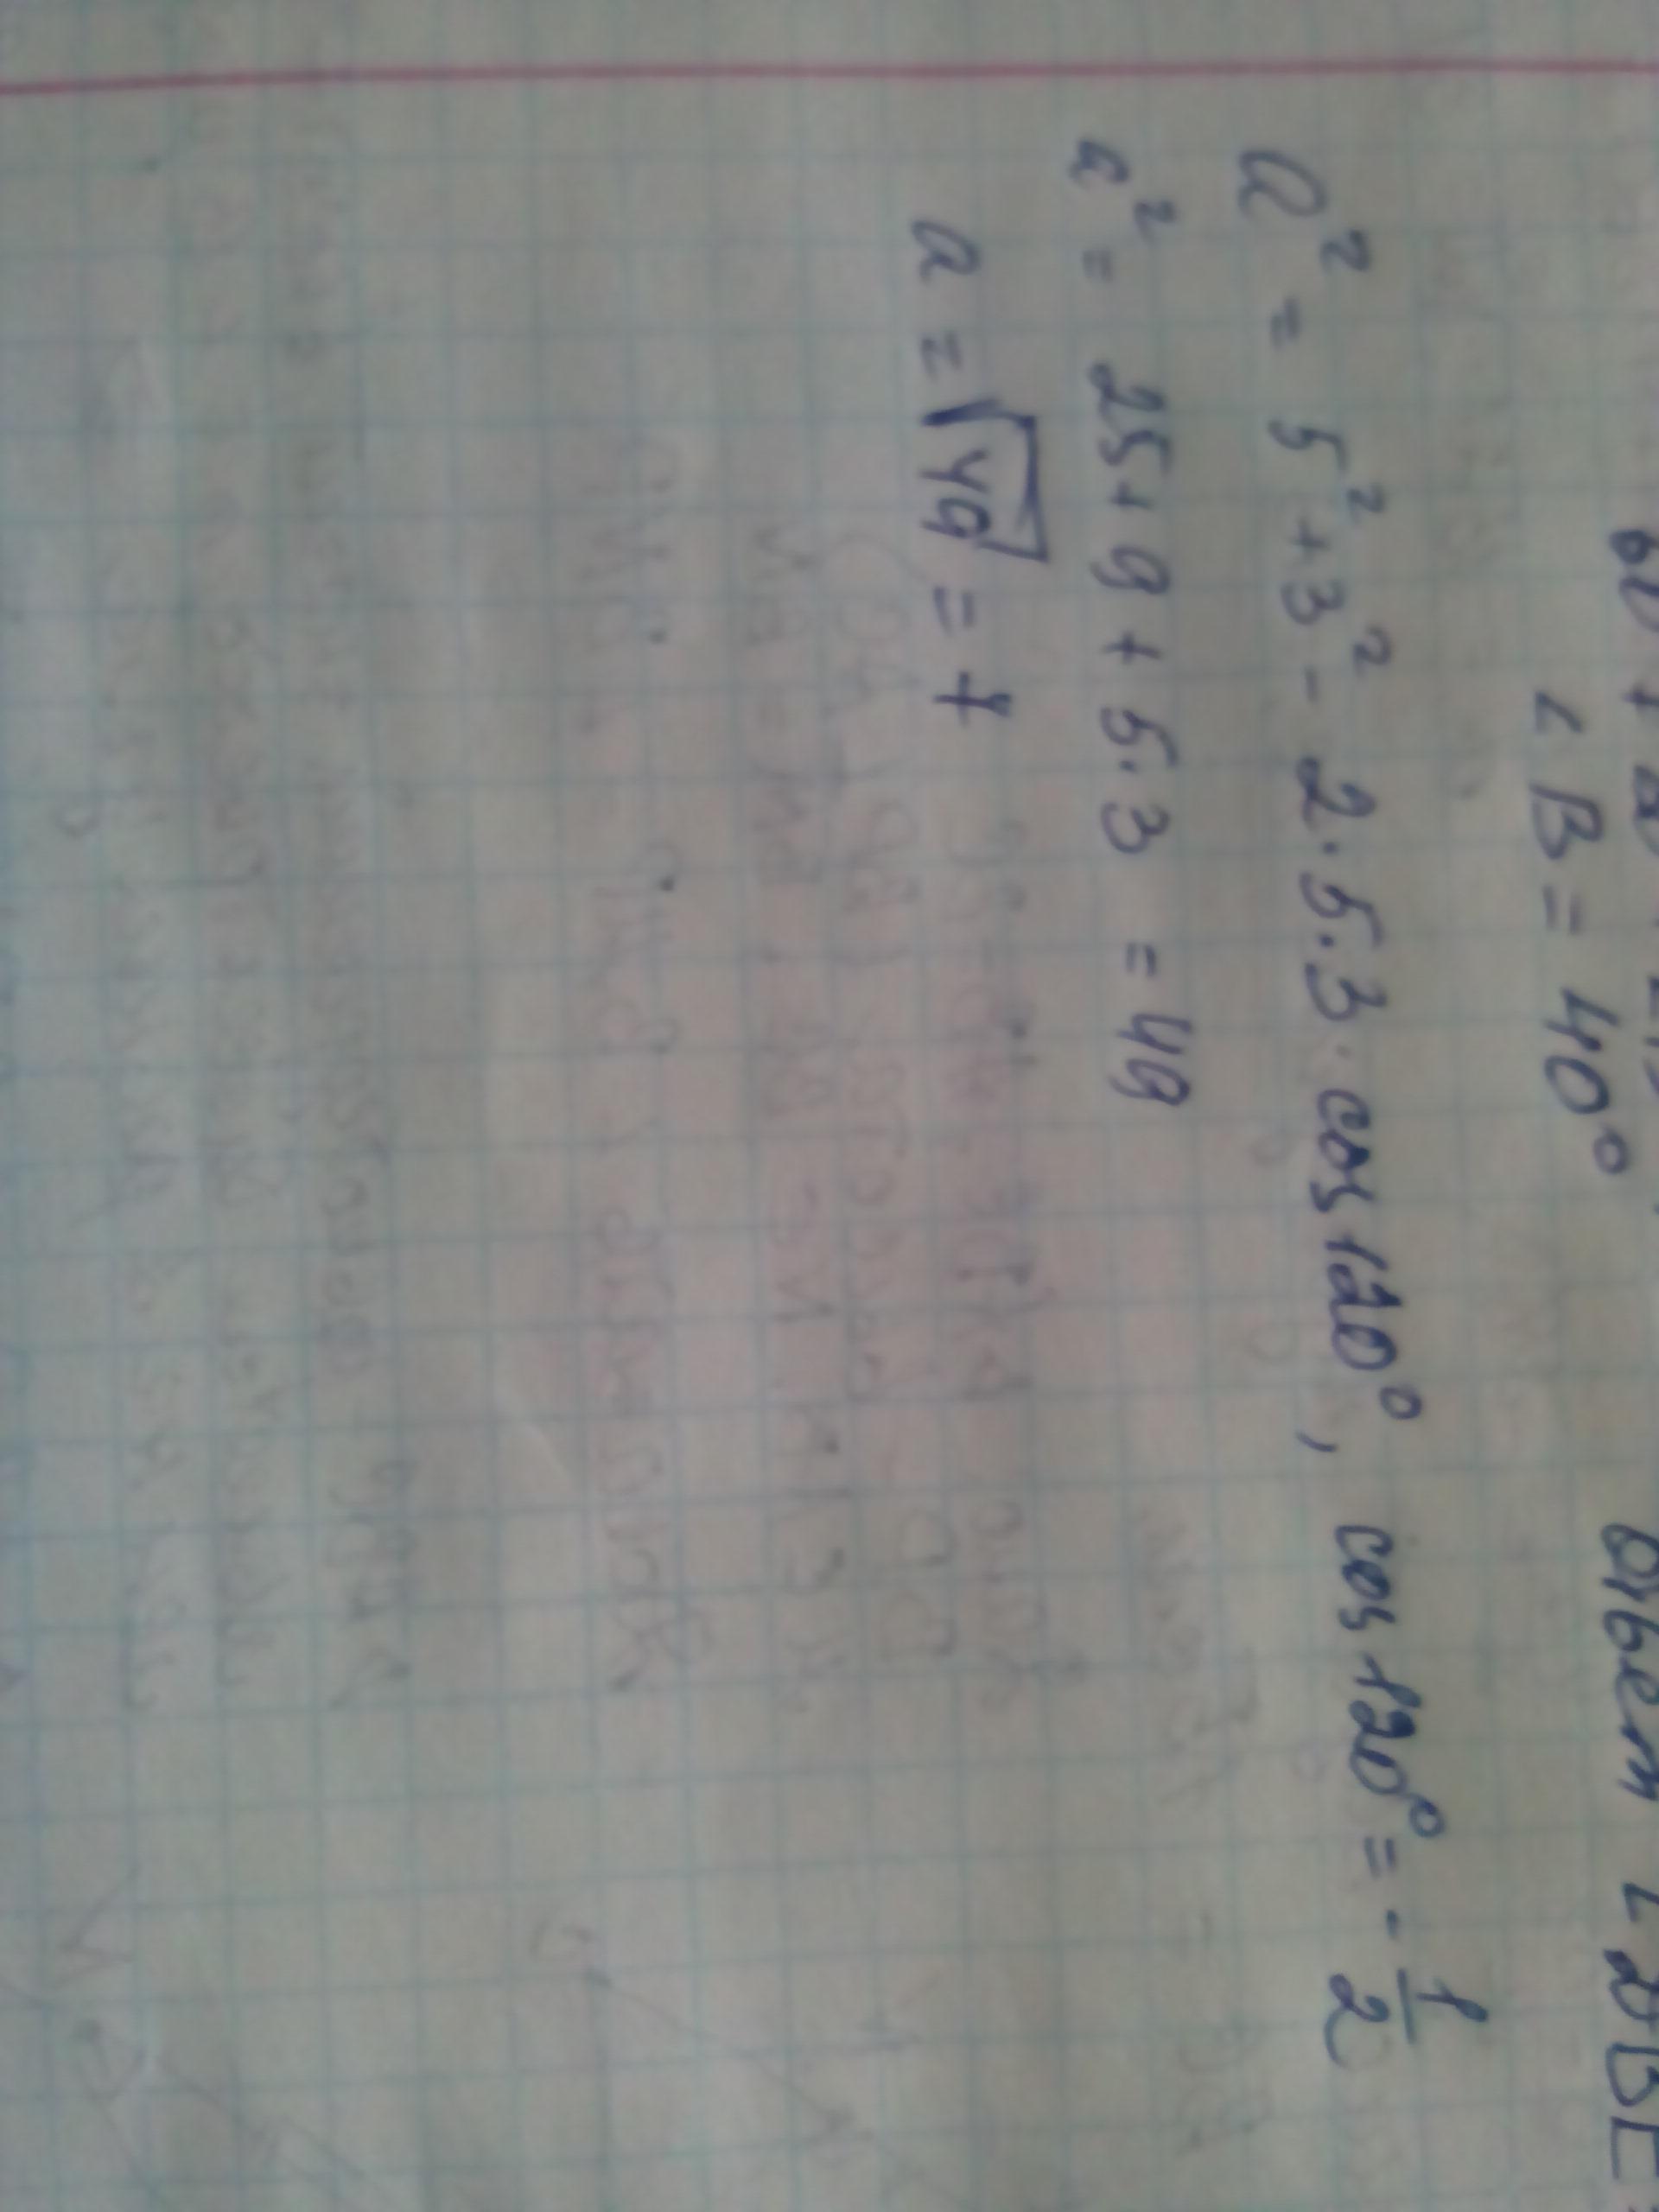 ∠B = 40°
Ответ ∠DBE
a² = 5² + 3² - 2·5·3·cos 120°, cos 120° = -1/2
a² = 25 + 9 + 5·3 = 49
a = √49 = 7